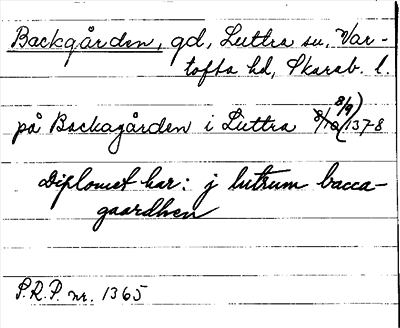 Backgården, gd, Luttra sn, Var-
tofta hd, Skarab. l.
på Backagården i Luttra 8/10 (8/9) 1378
Diplomet har: j lutrum bacca-
gaardhen
P.R.P. nr. 1365